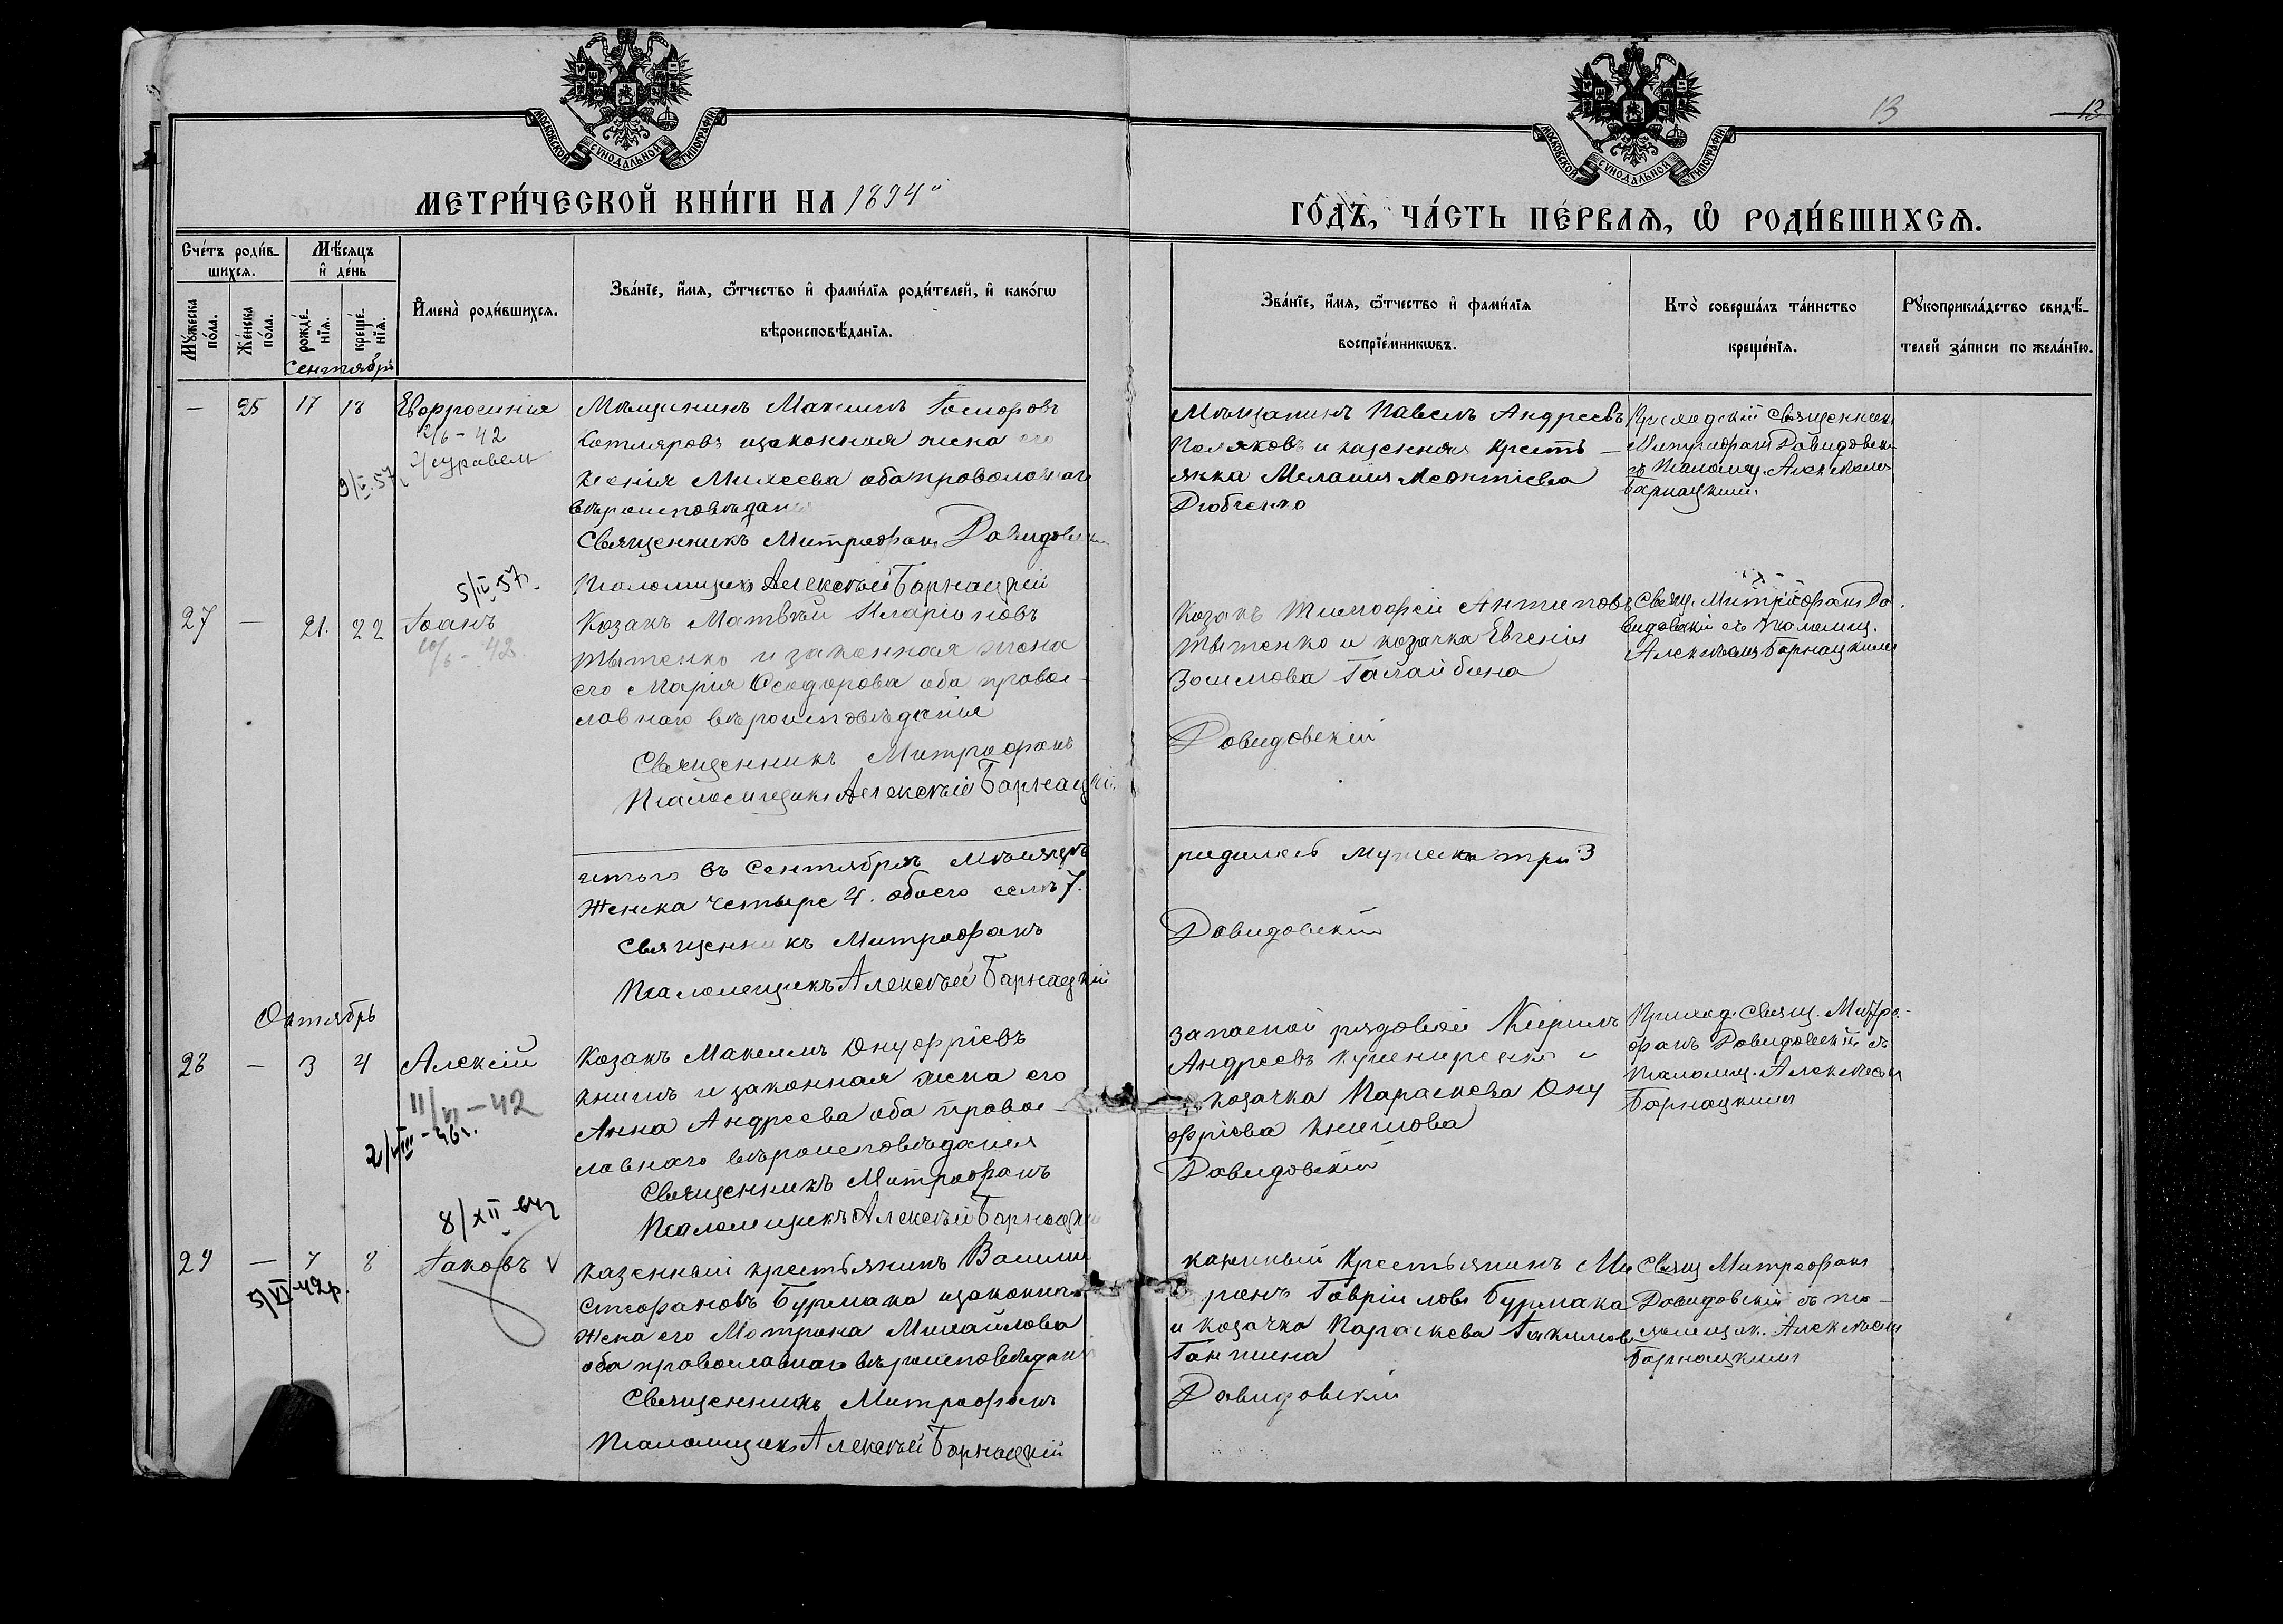 МОСКОВСКОЙ СУНОДАЛЬНОЙ ТИПОГРАФІИ
МОСКОВСКОЙ СУНОДАЛЬНОЙ ТИПОГРАФІИ
13
13
МЕТРИ́ЧЕСКОЙ КНИ́ГИ НА 1894
ГО́ДЪ, ЧА́СТЬ ПЕ́РВАѦ, Ѡ РОДИ́ВШИХСѦ.
Сче́тъ роди́в-
шихсѧ.
Мѣ́сяцъ
и҆ де́нь
Мꙋ́жеска
по́ла.
Же́нска
по́ла.
рожде́-
нїѧ.
креще́-
нїѧ.
И҆мена̀ роди́вшихсѧ.
Зва́нїе, и҆́мѧ, ѻ҆́тчество и҆ фами́лїѧ роди́телей, и҆ како́гѡ
вѣроисповѣ́данїѧ.
Зва́нїе, и҆́мѧ, ѻ҆́тчество и҆ фами́лїѧ
воспрїе́мникѡвъ.
Кто̀ соверша́лъ та́инство
креще́нїѧ.
Рꙋкоприкла́дство свидѣ́-
телей за́писи по жела́нїю.
Сентябрь
— 25 17 18 Евфросинія
Мѣщанинъ Максимъ
Котляровъ и законная жена его
Ксенія Михеева оба православнаго
вѣроисповѣданія
Священникъ Митрофанъ Давидовскій
Псаломщикъ Алексѣй Барнацкій
9/II 57
Мѣщанинъ Павелъ Андреевъ
Поляковъ и казенная кресть-
янка Меланія Леонтіева
Дюбченко
Приходскій священникъ
Митрофанъ Давидовскій
съ псаломщ. Алексѣемъ
Барнацкимъ
5/II 57.
27 — 21. 22 Іоанъ
10/6 - 42.
Козакъ Матвѣй Иларіоновъ
Тытенко и законная жена
его Марія Ѳеодорова оба правос-
лавнаго вѣроисповѣданія
Священникъ Митрофанъ
Псаломщикъ Алексѣй Барнацкій
Козакъ Тимофей Антиповъ
Тытенко и козачка Евгенія
Зосимова Галайбина
Давидовскій
Свящ. Митрофанъ Да-
видовскій съ псаломщ.
Алексѣемъ Барнацкимъ
итого въ Сентябрѣ мѣсяцѣ
женска четыре 4. обоего семь 7.
Священникъ Митрофанъ
Псаломщикъ Алексѣй Барнацкій
родилось мужеска три 3
Давидовскій
Октябрь
28 — 3 4 Алексій
11/VI - 42
2/VIII - 46г.
Козакъ Максимъ Онуфріевъ
Книшъ и законная жена его
Анна Андреева оба правос-
лавнаго вѣроисповѣданія
Священникъ Митрофанъ
Псаломщикъ Алексѣй Барнацкій
Запасной рядовой Кирилъ
Андреевъ Кушниренко и
козачка Параскева Ону
фріева Книшова
Давидовскій
Приход. свящ. Митро-
фанъ Давидовскій съ
псаломщ. Алексѣемъ
Барнацкимъ
8/XII
29 — 7 8 Іаковъ V
5/VI 42р.
Казенный крестьянинъ Василій
Стефановъ Бурмака и законная
жена его Матрона Михайлова
оба православнаго вѣроисповѣданія
Священникъ Митрофанъ
Псаломщикъ Алексѣй Барнацкій
казенный крестьянинъ Ми
ронъ Гавріиловъ Бурмака
и козачка Параскева Іакимова
Ганжина
Давидовскій
Свящ Митрофанъ
Давидовскій съ пса-
ломщик. Алексѣемъ
Барнацкимъ